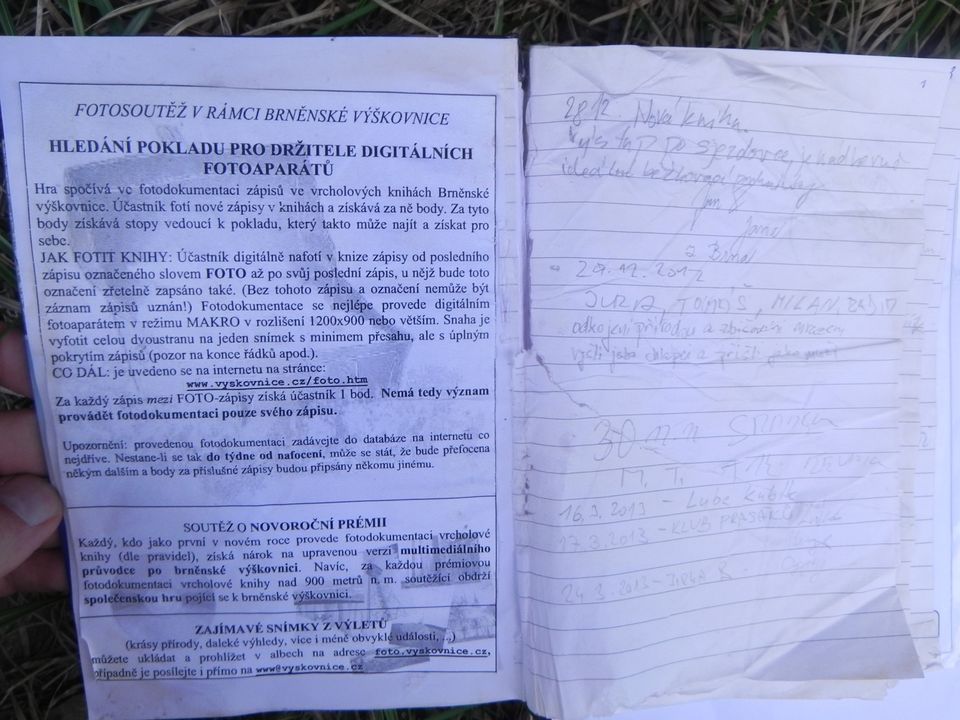 FOTOSOUTĚŽ V RÁMCI BRNĚNSKÉ VÝŠKOVNICE
HLEDÁNÍ POKLADU PRO DRŽITELE DIGITÁLNÍCH
FOTOAPARÁTŮ
Hra spočívá ve fotodokumentaci zápisů ve vrcholových knihách Brněnské
výškovnice. Účastník fotí nové zápisy v knihách a získává za ně body. Za tyto
body získává stopy vedoucí k pokladu, který takto může najít a získat pro
sebe.
JAK FOTIT KNIHY: Účastník digitálně nafotí v knize zápisy od posledního
zápisu označeného slovem FOTO až po svůj poslední zápis, u nějž bude toto
označení zřetelně zapsáno také. (Bez tohoto zápisu a označení nemůže být
záznam zápisů uznán!) Fotodokumentace se nejlépe provede digitálním
fotoaparátem v režimu MAKRO v rozlišení 1200x900 nebo větším. Snaha je
vyfotit celou dvoustranu na jeden snímek s minimem přesahu, ale s úplným
pokrytím zápisů (pozor na konce řádků apod.).
CO DÁL: je uvedeno se na internetu na stránce:
www.vyskovnice.cz/foto.htm
Za každý zápis mezi FOTO-zápisy získá účastník 1 bod. Nemá tedy význam
provádět fotodokumentaci pouze svého zápisu.
Upozornění: provedenou fotodokumentaci zadávejte do databáze na internetu co
nejdříve. Nestane-li se tak do týdne od nafocení, může se stát, že bude přefocena
někým dalším a body za příslušné zápisy budou připsány někomu jinému.
SOUTĚŽ O NOVOROČNÍ PRÉMII
Každý, kdo jako první v novém roce provede fotodokumentaci vrcholové
knihy (dle pravidel), získá nárok na upravenou verzi multimediálního
průvodce po brněnské výškovnici. Navíc, za každou prémiovou
fotodokumentaci vrcholové knihy nad 900 metrů n. m. soutěžící obdrží
společenskou hru pojící se k brněnské výškovnici.
ZAJÍMAVÉ SNÍMKY Z VÝLETŮ
(krásy přírody, daleké výhledy, více i méně obvyklé události, ...)
můžete ukládat a prohlížet v albech na adrese foto.vyskovnice.cz,
případně je posílejte i přímo na www@vyskovnice.cz
28.12. Nová kniha.
Výstup po sjezdovce, je nádherné
ideální
Jan
Jana
z Brna
29.12.2012
JURA, TOMÁŠ, MILAN, RADIM
odkojeni přírodou a
vyšli jsme chlapci a přišli jako muži
30.12.
M. T.
16.3.2013 - Luboš Kubík
17.3.2013 - KLUB PRASÁKŮ
24.3.2013 - JIRKA